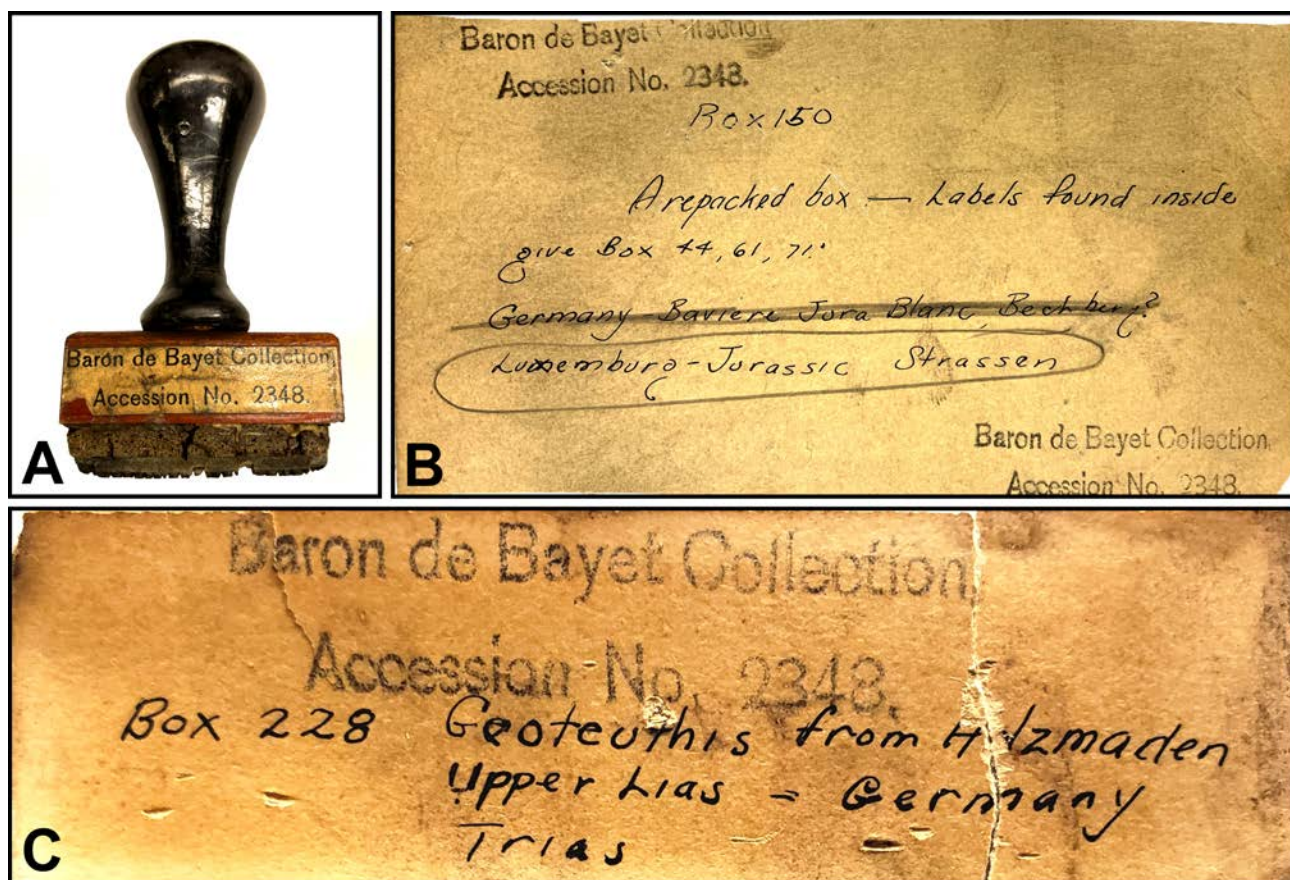 Baron de Bayet Collection
Accession No. 2348.
A
Baron de Bayet Collection
Accession No. 2348.
Box 150
A repacked box — Labels found inside
give Box 44, 61, 71.
Germany - Baviere Jura Blanc, Bechberg?
Luxemburg - Jurassic Strassen
Baron de Bayet Collection
Accession No. 2348.
B
Baron de Bayet Collection
Accession No. 2348.
Box 228 Geoteuthis from Holzmaden
Upper Lias = Germany
Trias
C